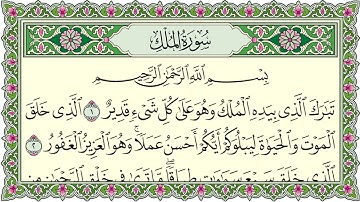 سُورَةُ المُلْكِ
بِسْمِ اللَّهِ الرَّحْمَٰنِ الرَّحِيمِ
تَبَارَكَ الَّذِي بِيَدِهِ الْمُلْكُ وَهُوَ عَلَىٰ كُلِّ شَيْءٍ قَدِيرٌ ١ الَّذِي خَلَقَ
الْمَوْتَ وَالْحَيَوٰةَ لِيَبْلُوَكُمْ أَيُّكُمْ أَحْسَنُ عَمَلًا ۚ وَهُوَ الْعَزِيزُ الْغَفُورُ ٢
الَّذِي خَلَقَ سَبْعَ سَمَٰوَٰتٍ طِبَاقًا ۖ مَّا تَرَىٰ فِي خَلْقِ الرَّحْمَٰنِ مِن